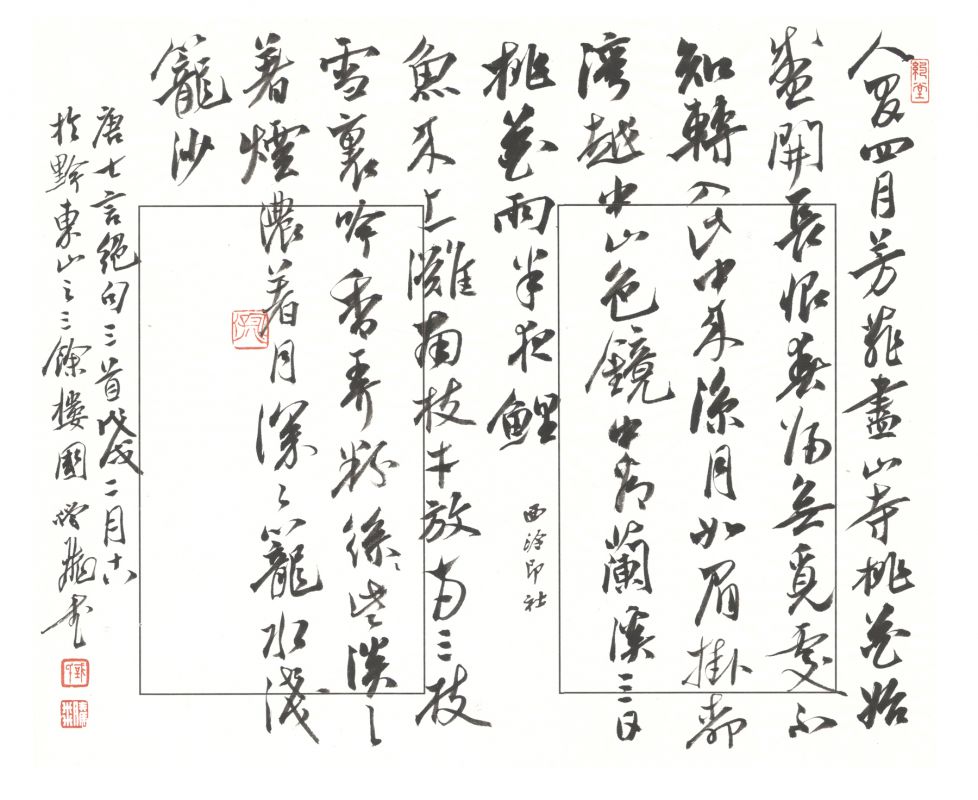 人間四月芳菲盡山寺桃花始
盛開長恨春歸無覓處不
知轉入此中來涼月如眉掛柳
灣越中山色鏡中看蘭溪三日
桃花雨半夜鯉
西泠印社
魚來上灘南枝才放兩三枝
雪裏吟香弄粉些淡〻
著煙濃著月深〻籠水淺
籠沙
唐七言絕句三首戊戌二月十六
於黔東山之三餘樓國書